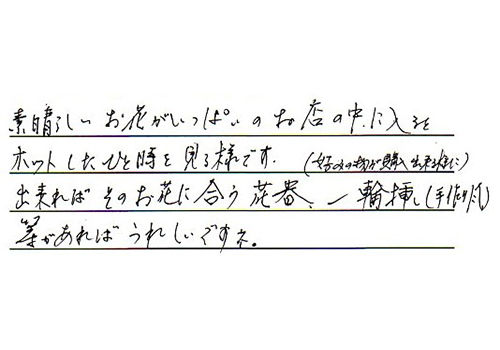 素晴らしいお花がいっぱいのお店の中に入ると
ホットしたひと時を見る様です。(好みの物が購入出来る様に)
出来ればそのお花に合う花器、一輪挿し(手作り風)
等があればうれしいですネ。